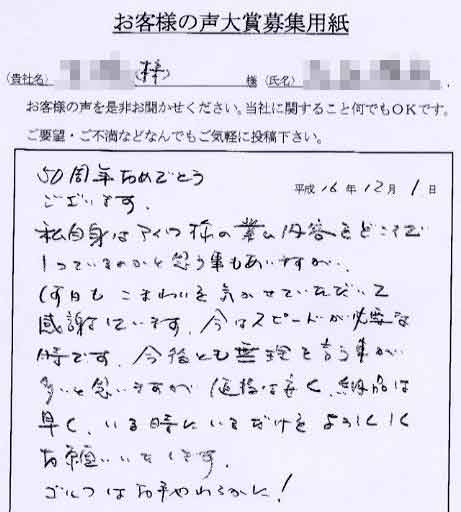 お客様の声大賞募集用紙
(貴社名) (株) 様 (氏名)
お客様の声を是非お聞かせください。当社に関すること何でもOKです。
ご要望・ご不満などなんでもご気軽に投稿下さい。
50周年おめでとう
ございます.
平成 16 年 12 月 1 日
私自身はアイワ様の業ム内容をどこまで
しっているのかと思う事もありますが、
何日もこまわりを気かせていただいて
感謝しています。今はスピードが必要な
時です。今後とも無理を言う事が
多いと思いますが 価格は安く、納品は
早く、いる時にいるだけをよろしく
お願いいたします。
ゴルフはお手やわらかに!